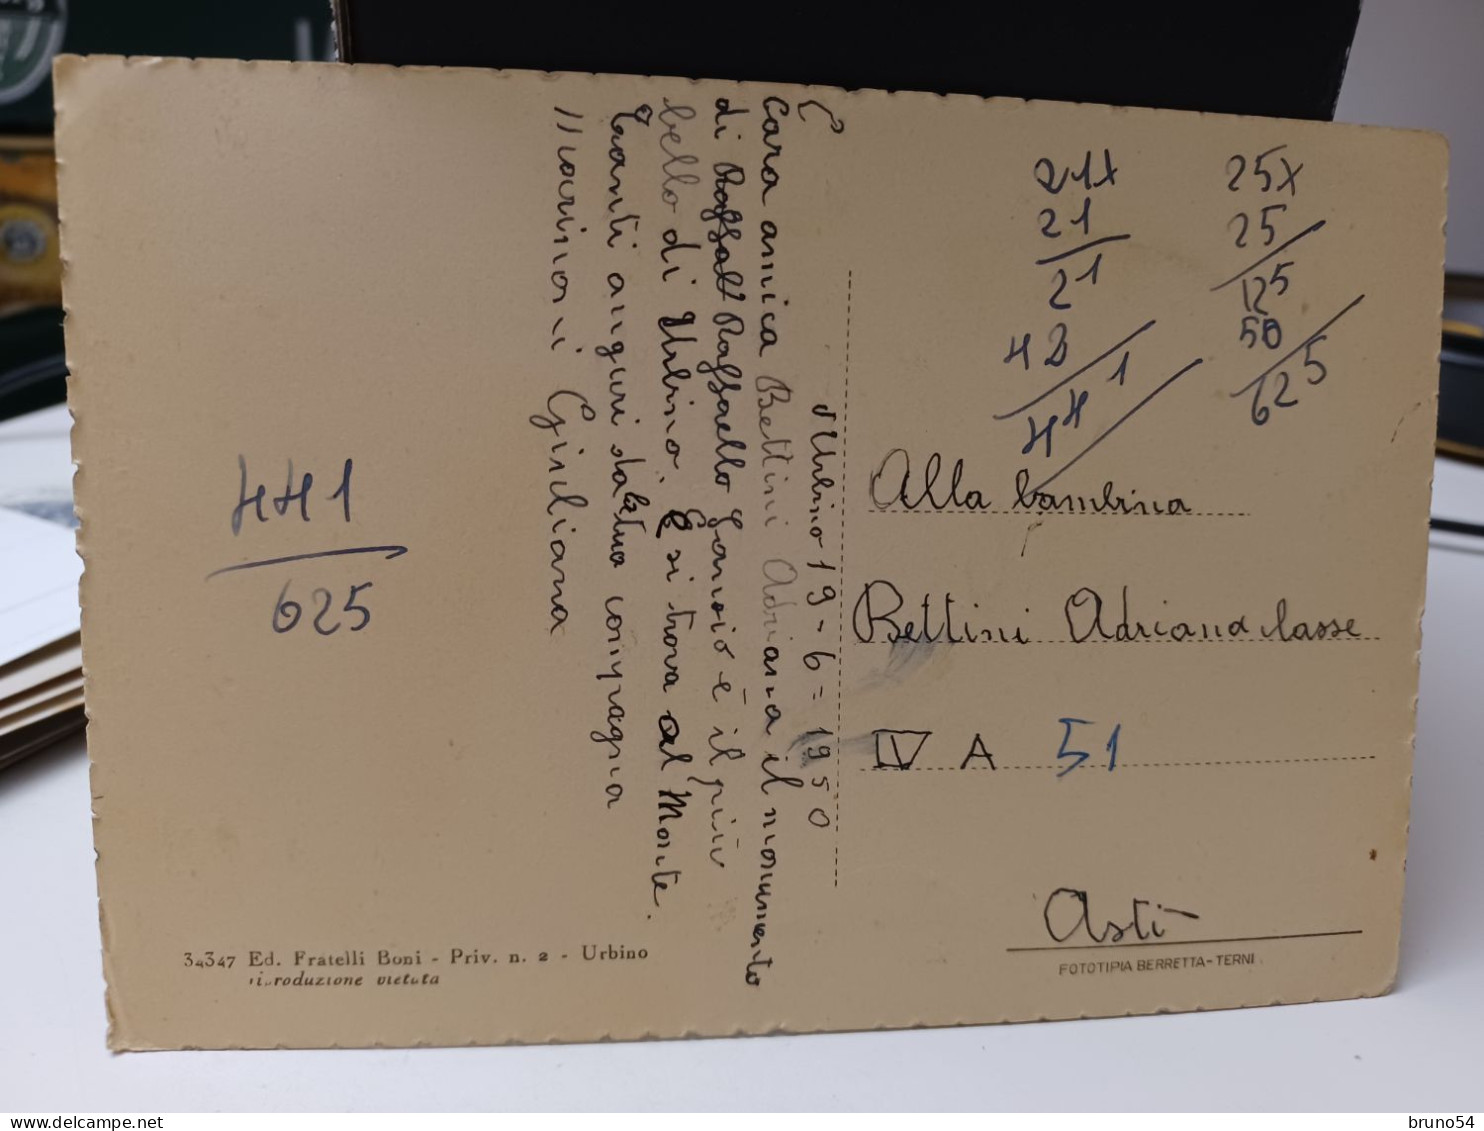 Urbino 19-6-1950
Cara amica Bettini Adriana il monumento
di Raffaello Sanzio è il più
bello di Urbino. E si trova al Monte.
Tanti auguri dalla tua compagna
Marinoni Gisliana
21x
21
21
42
441
25x
25
125
50
625
441
625
Alla bambina
Bettini Adriana classe
IV A 51
Asti
34347 Ed. Fratelli Boni - Priv. n. 2 - Urbino
riproduzione vietata
FOTOTIPIA BERRETTA-TERNI
www.delcampe.net
bruno54